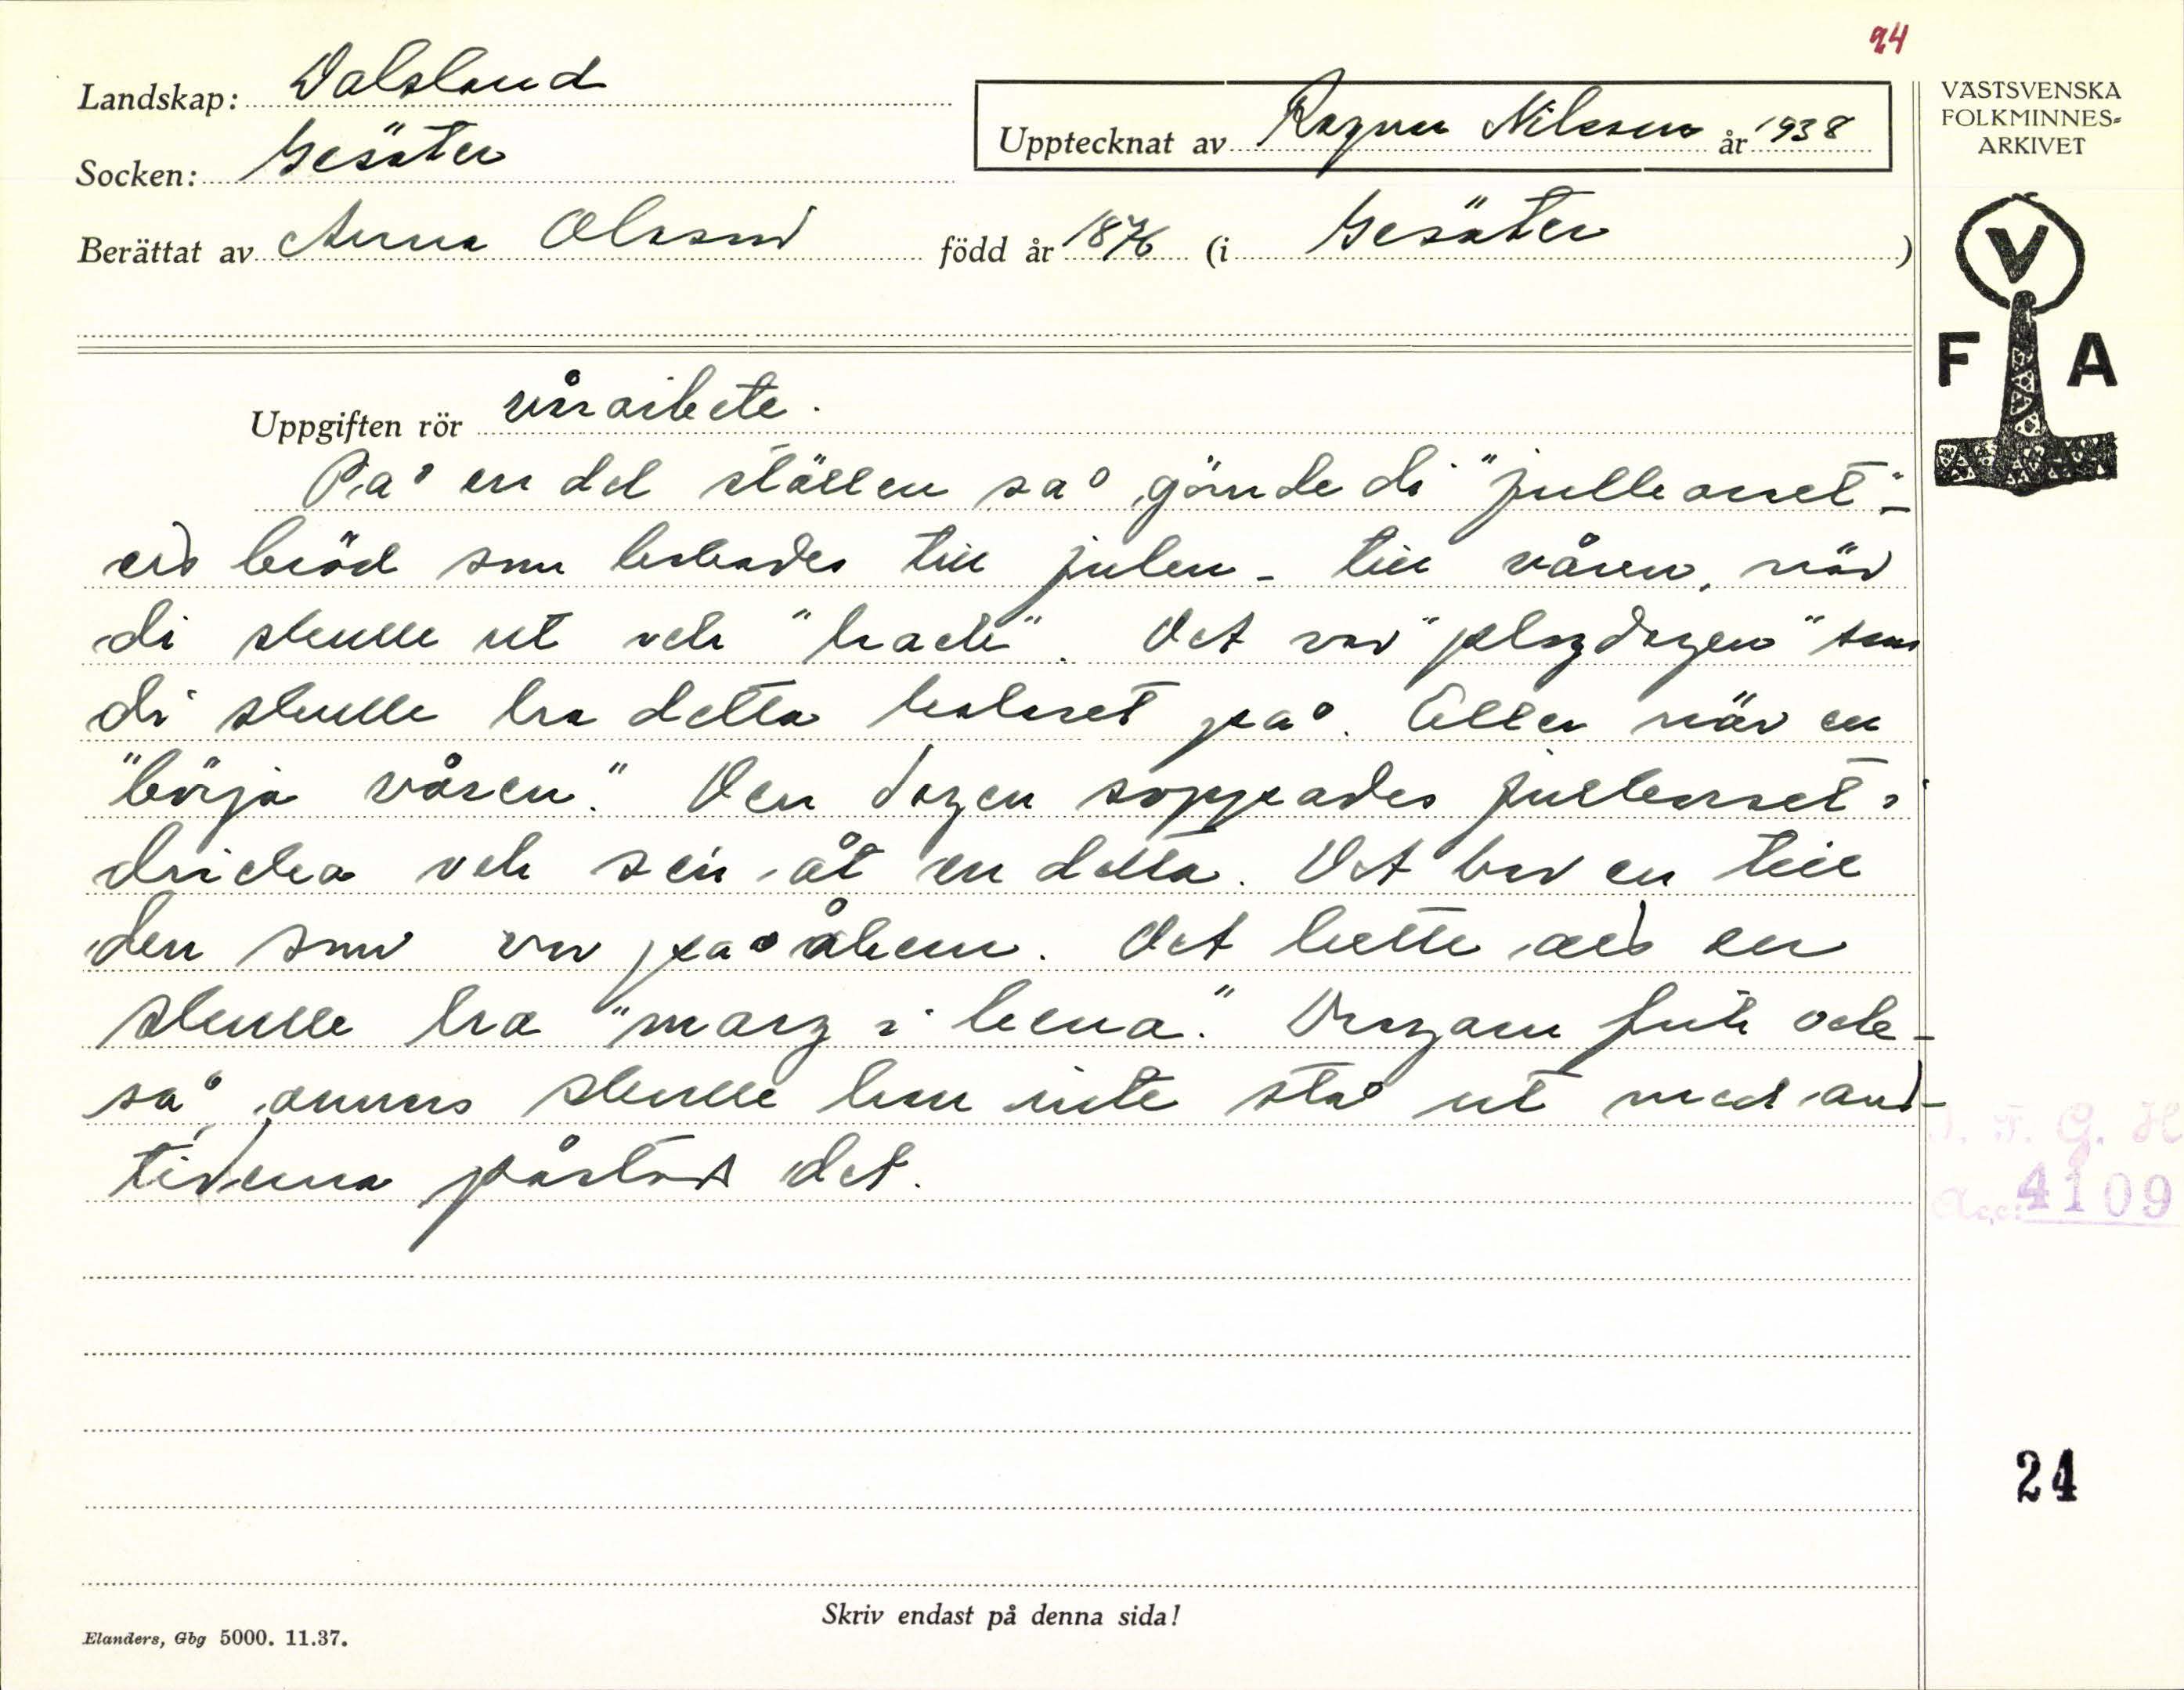 24
Landskap: Dalsland
Socken: Gesäter
Upptecknat av Ragnar Nilsson år 1938
Berättat av Anna Olsson född år 1876 (i Gesäter)
VÄSTSVENSKA
FOLKMINNES-
ARKIVET
V
F A
Uppgiften rör vårarbete.
På en del ställen så gömde di "julle
ett bröd som bakades till julen - till våren, när
di skulle ut och Det var "plogdagen" som
di skulle ha detta kalaset på. Eller när en
"börja våren". Den dagen soppades i
dricka och sen åt en detta. Det bar en till
den som var på åkern. Det hette att en
skulle ha "marg i bena". Dragarn fick ock-
så, annars skulle han inte stå ut med an-
tiderna påstods det.
D. F. G. H
Acc: 4109
24
Skriv endast på denna sida!
Elanders, Gbg 5000. 11.37.